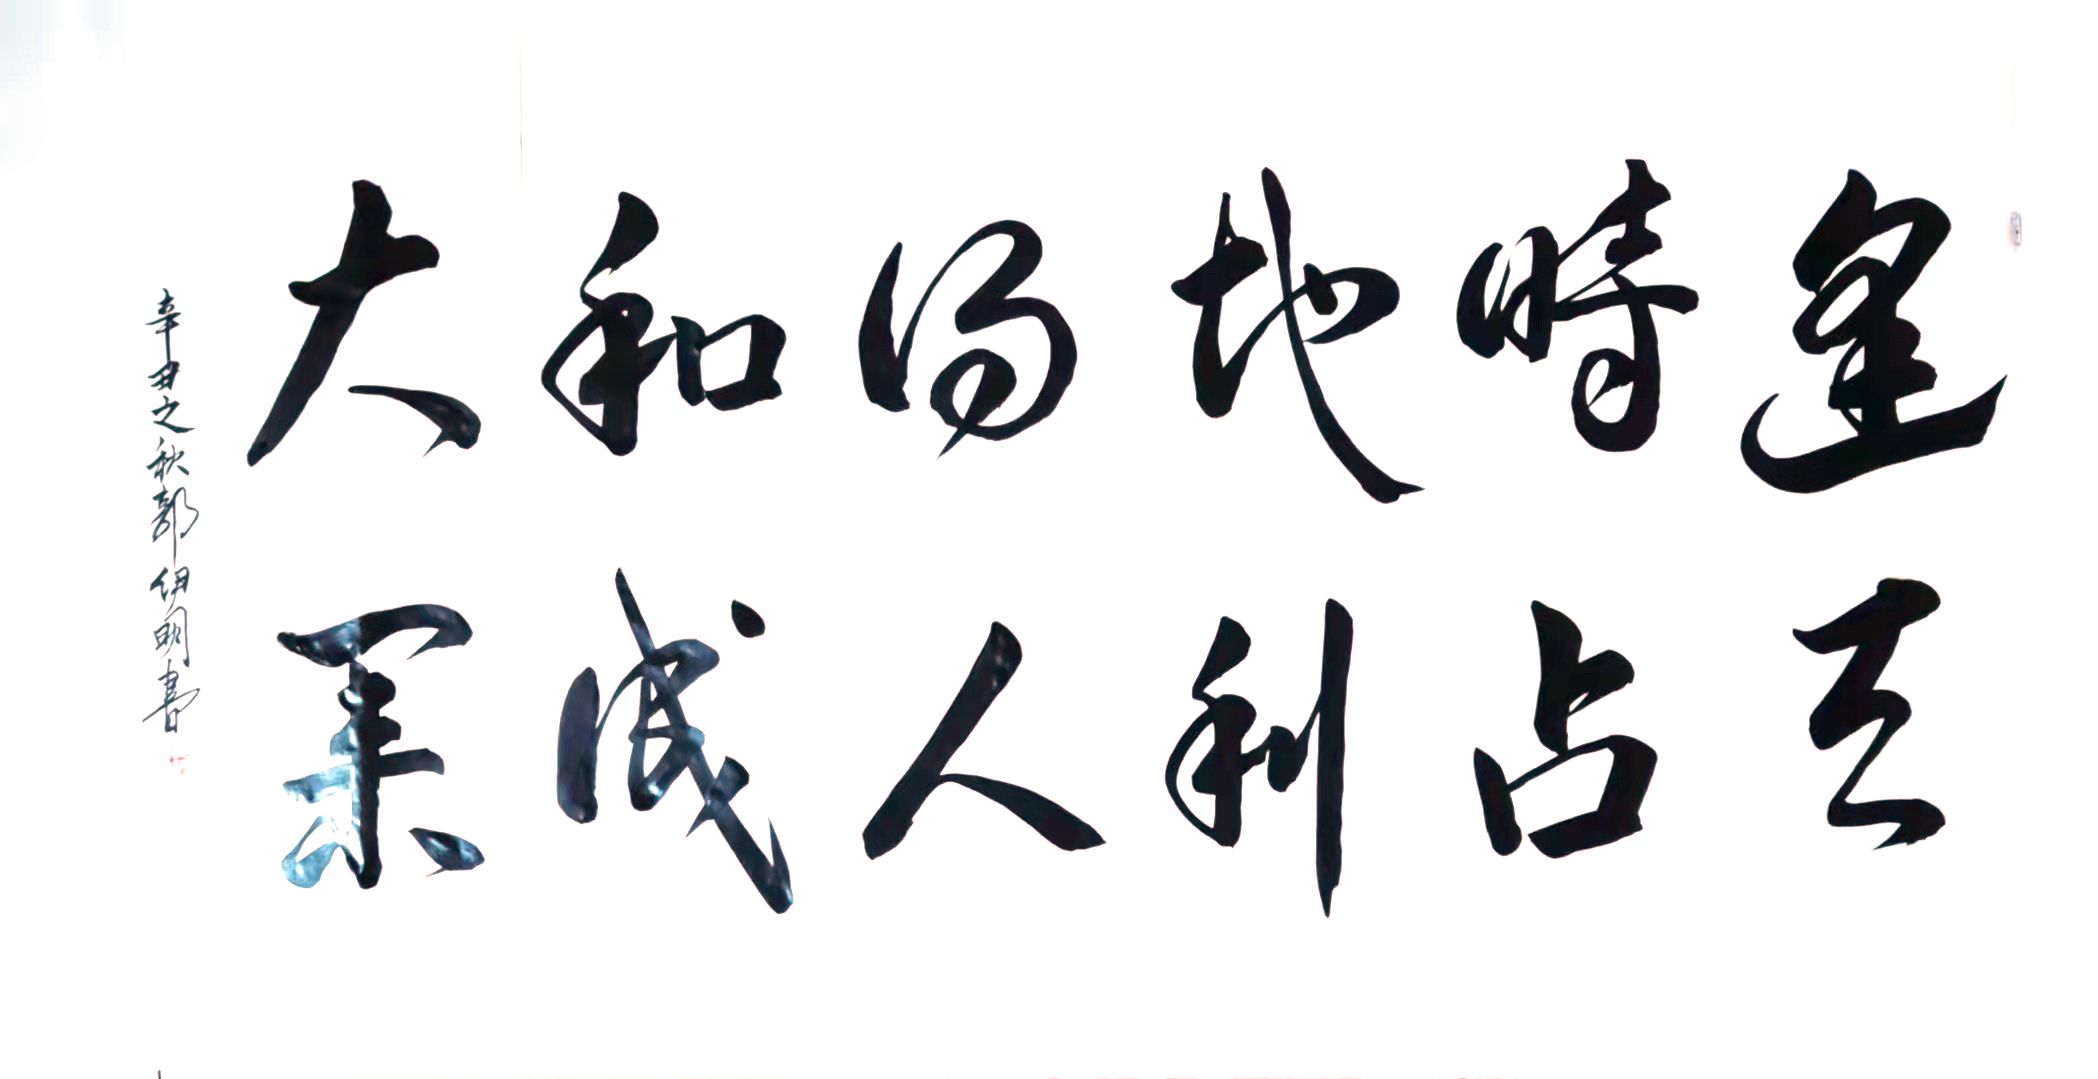 逢天
時占
地利
得人
和成
大業
辛丑之秋郭伊明書